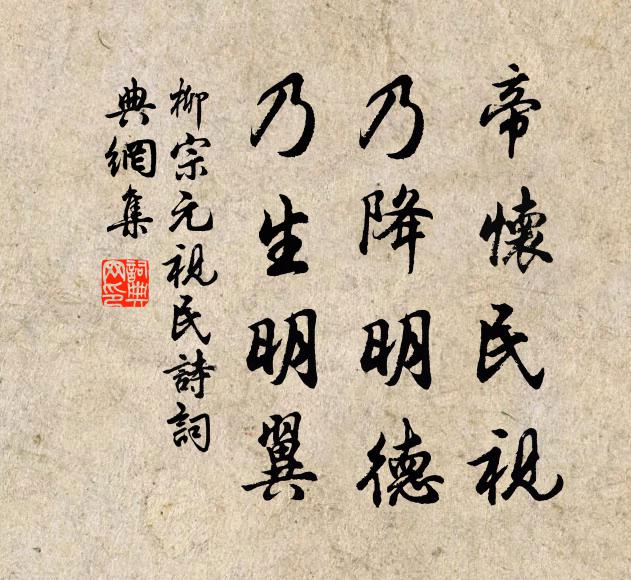 帝懷民視
乃降明德
乃生明翼
柳宗元視民詩詞
典網集
詞典网印